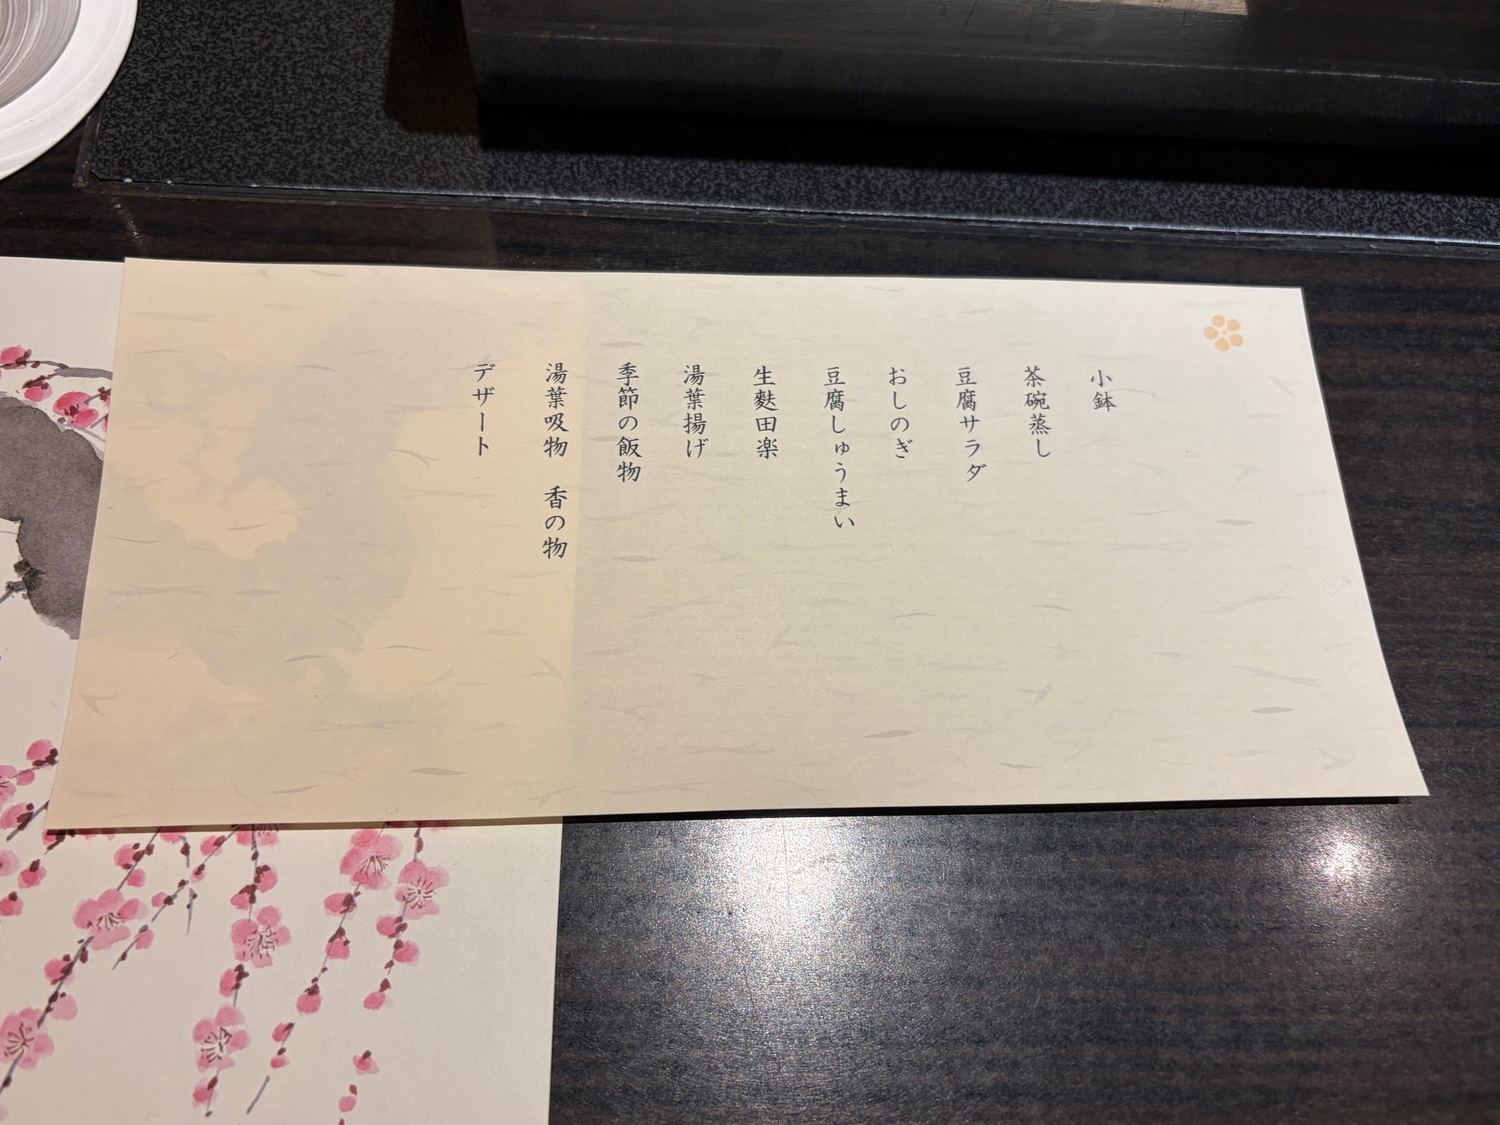 小鉢
茶碗蒸し
豆腐サラダ
おしのぎ
豆腐しゅうまい
生麩田楽
湯葉揚げ
季節の飯物
湯葉吸物　香の物
デザート